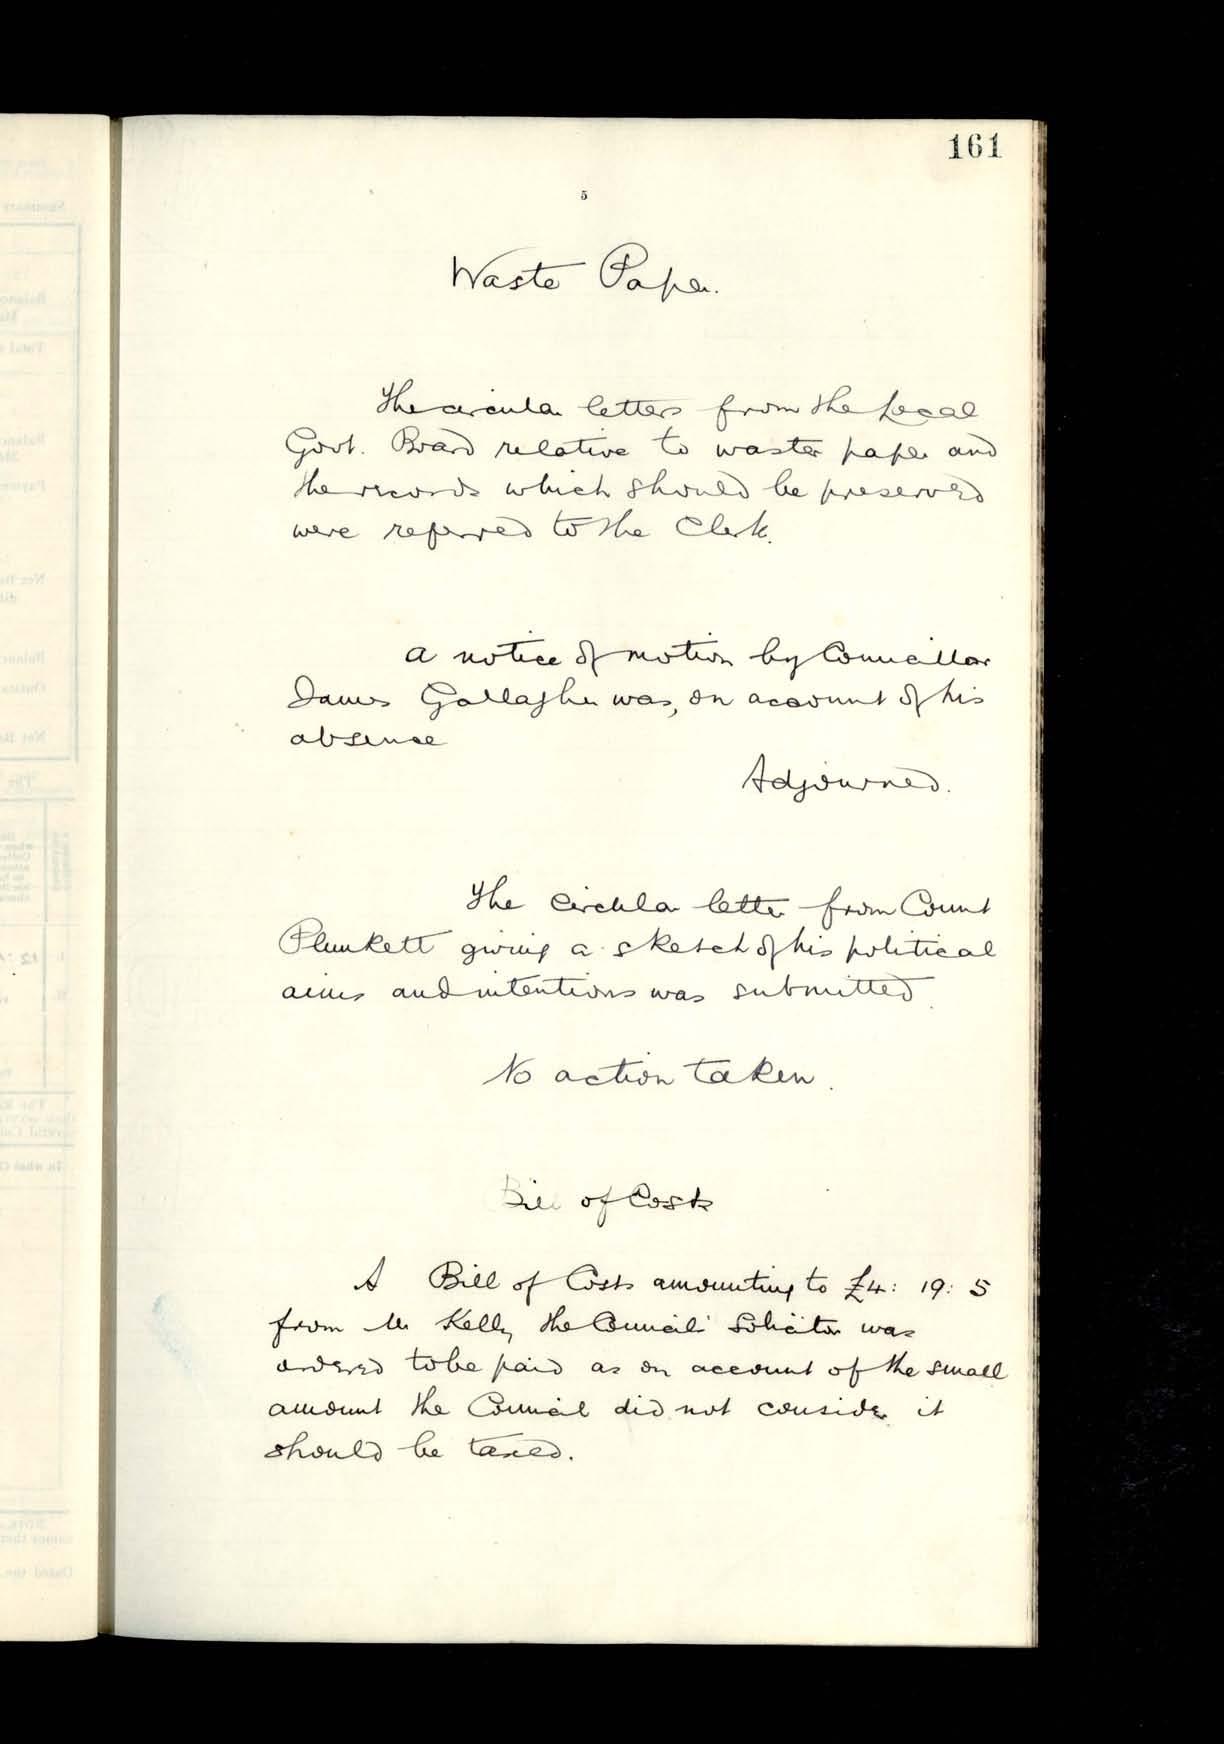 161
5
Waste Paper.
The circular letters from the Local
Govt. Board relative to waste paper and
the records which should be preserved
were referred to the Clerk.
A notice of motion by Councillor
James Gallagher was, on account of his
absence
Adjourned.
The circular letter from Count
Plunkett giving a sketch of his political
aims and intentions was submitted.
No action taken.
Bill of Costs
A Bill of Costs amounting to £4: 19: 5
from Mr Kelly the Council's Solicitor was
ordered to be paid as on account of the small
amount the Council did not consider it
should be taxed.